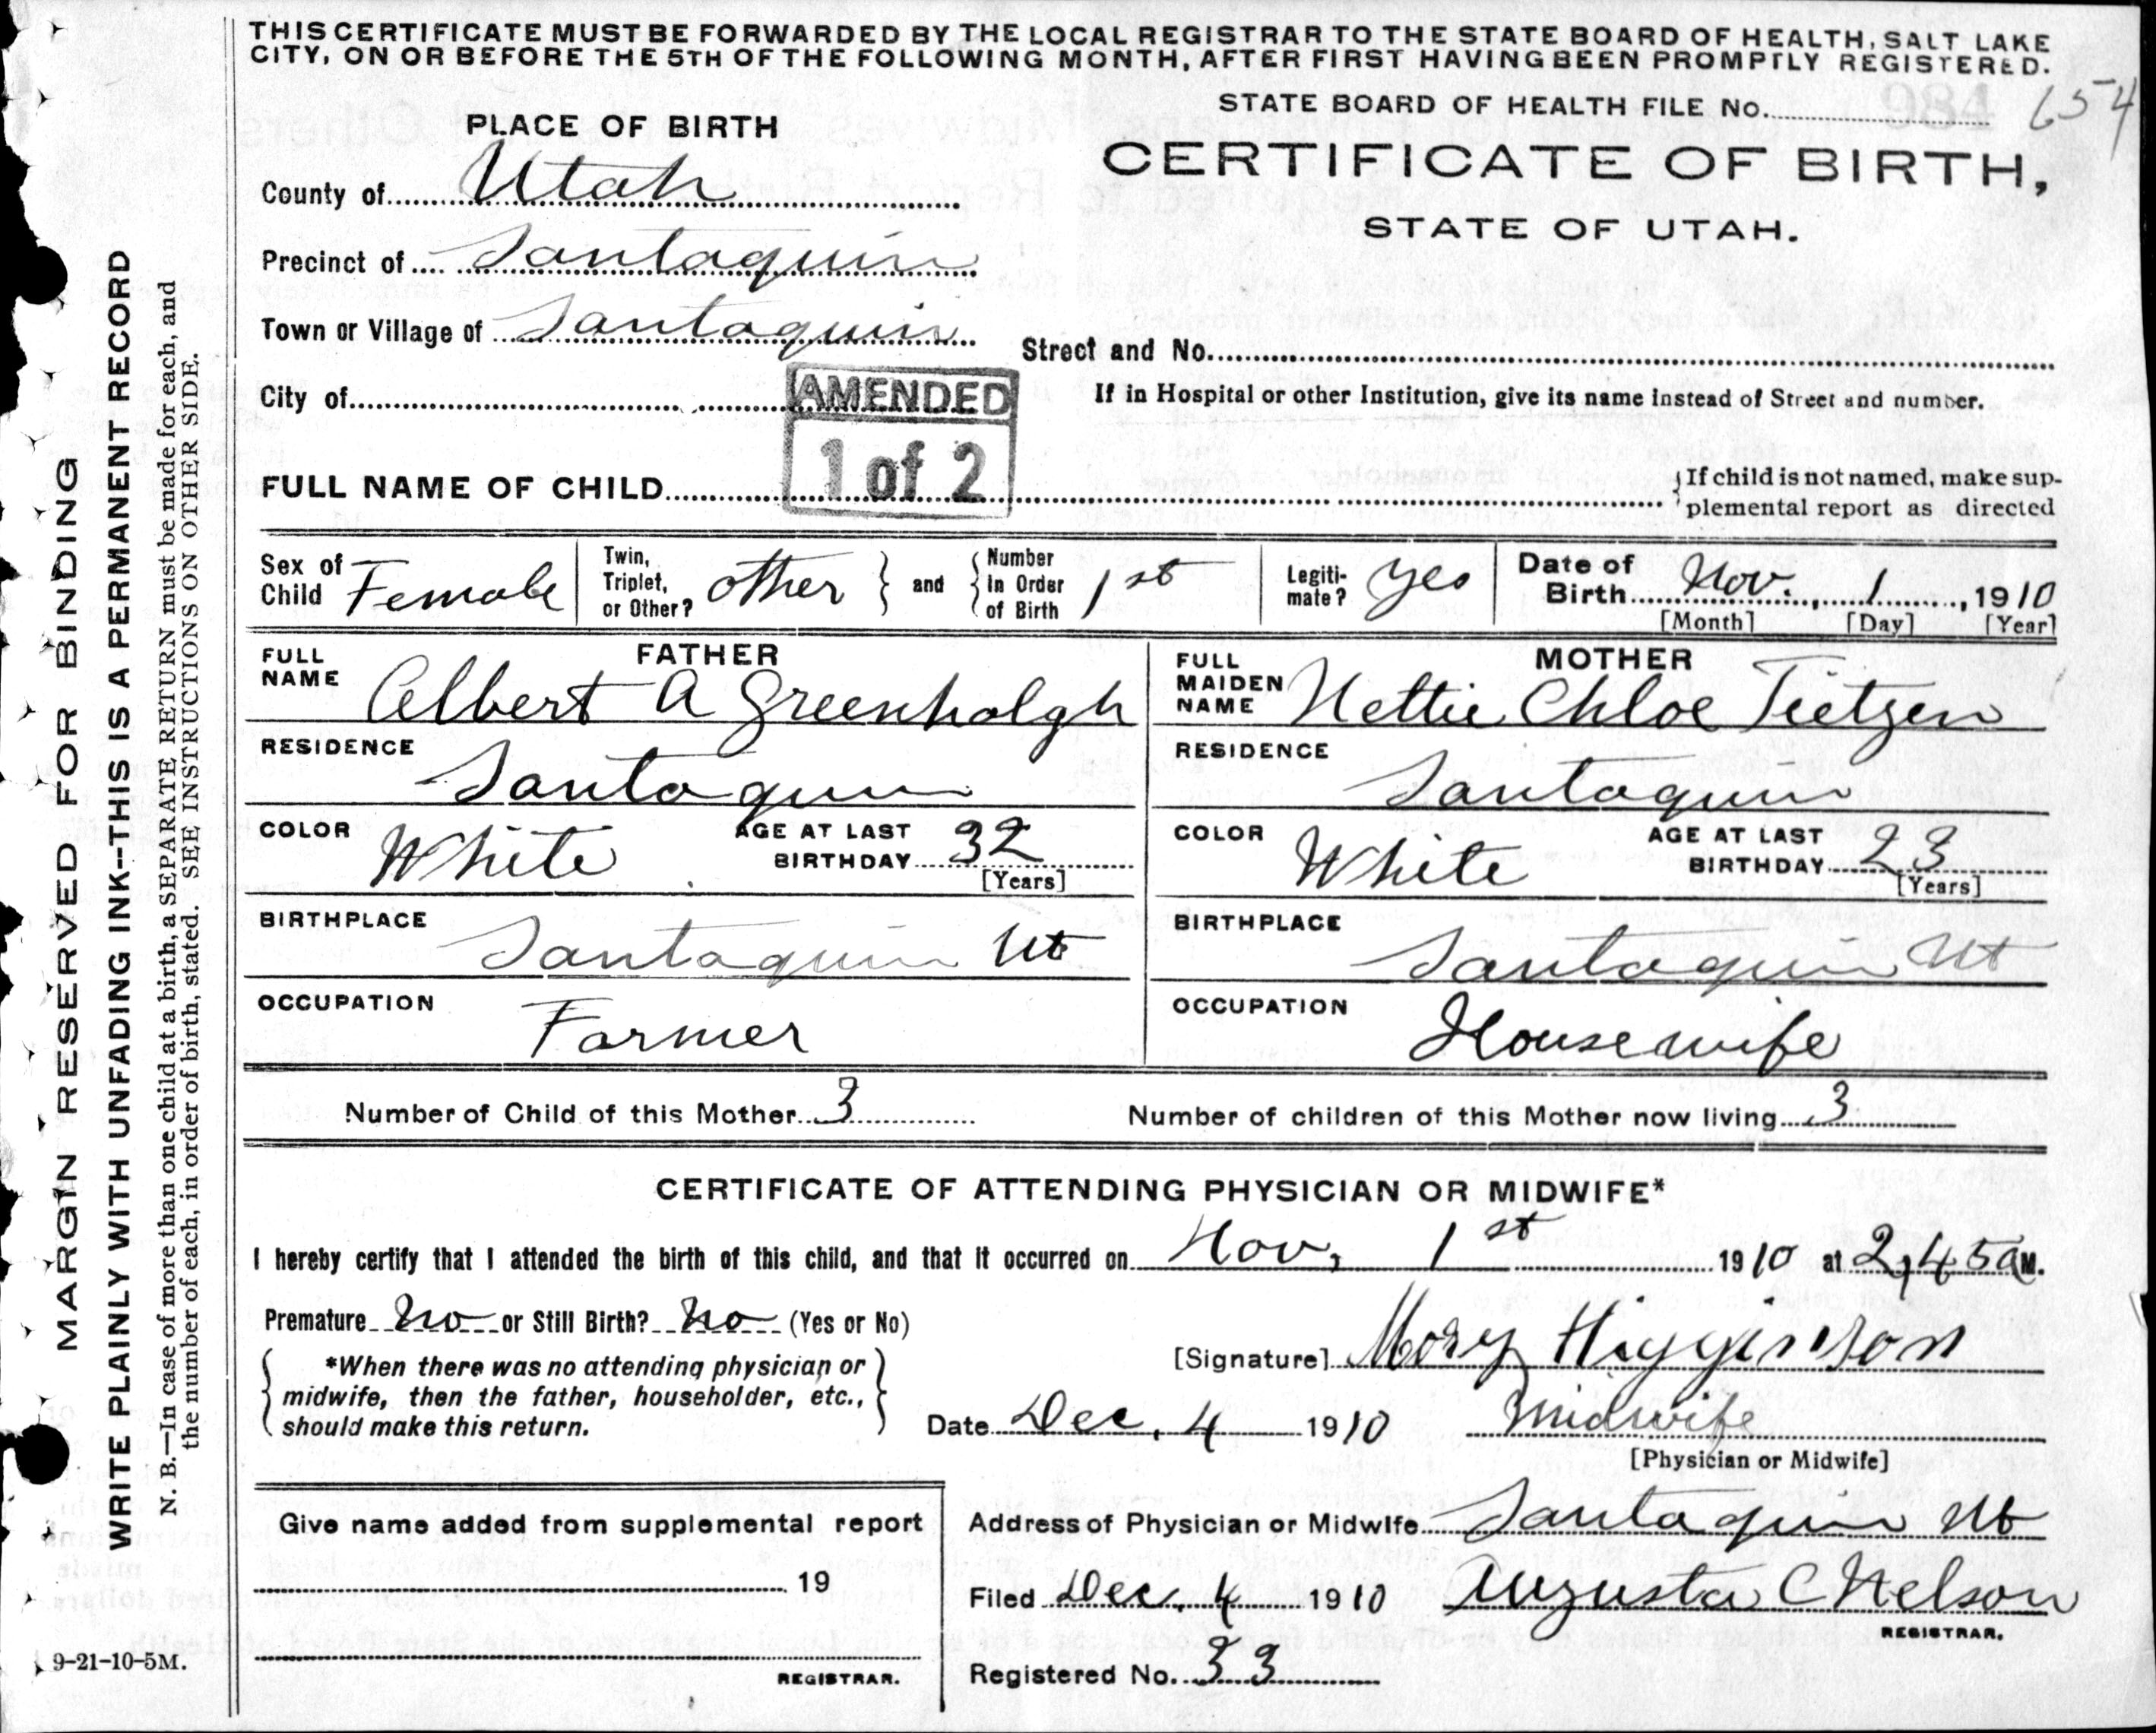 THIS CERTIFICATE MUST BE FORWARDED BY THE LOCAL REGISTRAR TO THE STATE BOARD OF HEALTH, SALT LAKE
CITY, ON OR BEFORE THE 5TH OF THE FOLLOWING MONTH, AFTER FIRST HAVING BEEN PROMPTLY REGISTERED.
STATE BOARD OF HEALTH FILE No. 984 654
PLACE OF BIRTH
CERTIFICATE OF BIRTH,
STATE OF UTAH.
County of Utah
Precinct of Santaquin
Town or Village of Santaquin
Street and No.
City of
AMENDED
1 of 2
If in Hospital or other Institution, give its name instead of Street and number.
FULL NAME OF CHILD
If child is not named, make sup-
plemental report as directed
Sex of Child Female
Twin, Triplet, or Other? other } and { Number in Order of Birth 1st
Legiti-mate? yes
Date of Birth Nov. 1, 1910
[Month] [Day] [Year]
FATHER
FULL NAME Albert A Greenhalgh
RESIDENCE Santaquin
COLOR White AGE AT LAST BIRTHDAY 32
[Years]
BIRTHPLACE Santaquin Ut
OCCUPATION Farmer
MOTHER
FULL MAIDEN NAME Nettie Chloe Tietzen
RESIDENCE Santaquin
COLOR White AGE AT LAST BIRTHDAY 23
[Years]
BIRTHPLACE Santaquin Ut
OCCUPATION Housewife
Number of Child of this Mother 3 Number of children of this Mother now living 3
CERTIFICATE OF ATTENDING PHYSICIAN OR MIDWIFE*
I hereby certify that I attended the birth of this child, and that it occurred on Nov, 1st 1910 at 2,45 a M.
Premature No or Still Birth? No (Yes or No)
*When there was no attending physician or
midwife, then the father, householder, etc.,
should make this return.
[Signature] Mary Higginson
Date Dec, 4 1910 Midwife
[Physician or Midwife]
Give name added from supplemental report
19
REGISTRAR.
Address of Physician or Midwife Santaquin Ut
Filed Dec. 4 1910 Augusta C Nelson
REGISTRAR.
Registered No. 33
9-21-10-5M.
MARGIN RESERVED FOR BINDING
WRITE PLAINLY WITH UNFADING INK--THIS IS A PERMANENT RECORD
N. B.—In case of more than one child at a birth, a SEPARATE RETURN must be made for each, and
the number of each, in order of birth, stated. SEE INSTRUCTIONS ON OTHER SIDE.